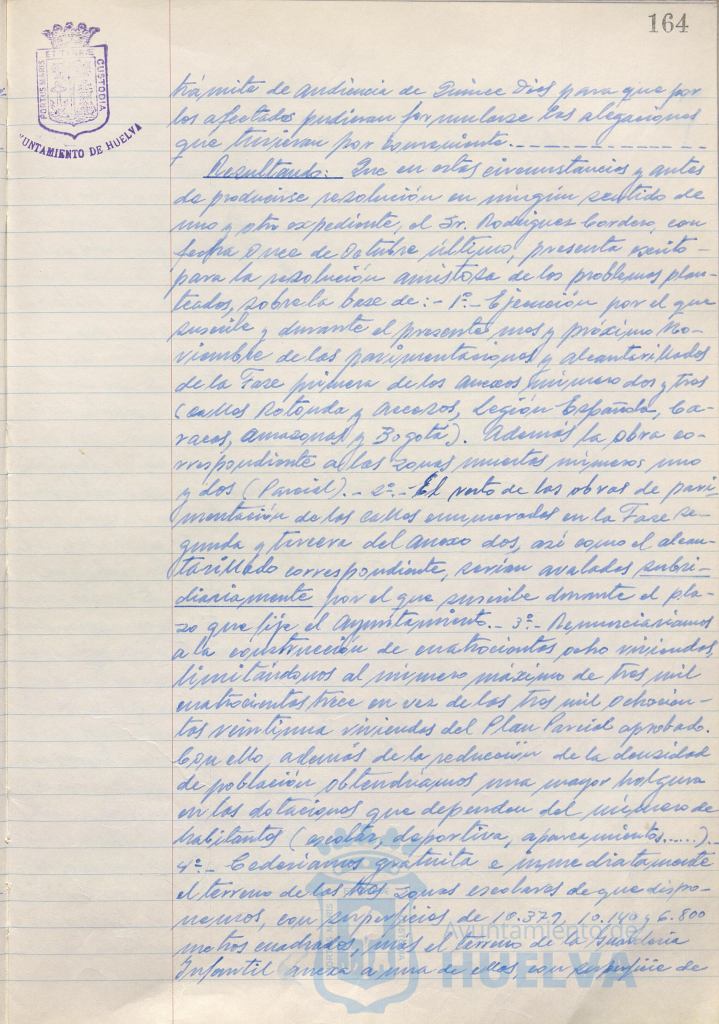 164
PORTUS MARIS ET TERRAE CUSTODIA
AYUNTAMIENTO DE HUELVA
trámite de audiencia de Quince días para que por
los afectados pudieran formularse las alegaciones
que tuvieran por conveniente.
Resultando: Que en estas circunstancias y antes
de producirse resolución en ningún sentido de
uno y otro expediente, el Sr. Rodriguez Cordero, con
fecha Once de Octubre último, presenta escrito
para la resolución amistosa de los problemas plan-
teados, sobre la base de:- 1º.- Ejecución por el que
suscribe y durante el presente mes y próximo No-
viembre de las pavimentaciones y alcantarillados
de la Fase primera de los anexos número dos y tres
(calles Rotonda y accesos, Legión Española, Ca-
racas, Amazonas y Bogotá). Además la obra co-
rrespondiente a las zonas muertas números uno
y dos (Parcial).- 2º.- El resto de las obras de pavi-
mentación de las calles enumeradas en la Fase se-
gunda y tercera del anexo dos, así como el alcan-
tarillado correspondiente, serían avalados subsi-
diariamente por el que suscribe durante el pla-
zo que fije el Ayuntamiento.- 3º.- Renunciaríamos
a la construcción de cuatrocientas ocho viviendas,
limitándonos al número máximo de tres mil
cuatrocientas trece en vez de las tres mil ochocien-
tas veintiuna viviendas del Plan Parcial aprobado.
Con ello, además de la reducción de la densidad
de población obtendríamos una mayor holgura
en las dotaciones que dependen del número de
habitantes (escolar, deportiva, aparcamientos.....).-
4º.- Cederíamos gratuita e inmediatamente
el terreno de las tres zonas escolares de que dispo-
nemos, con superficies, de 10.379, 10.140 y 6.800
metros cuadrados, más el terreno de la Guardería
Infantil anexa a una de ellas, con superficie de
Ayuntamiento de
HUELVA